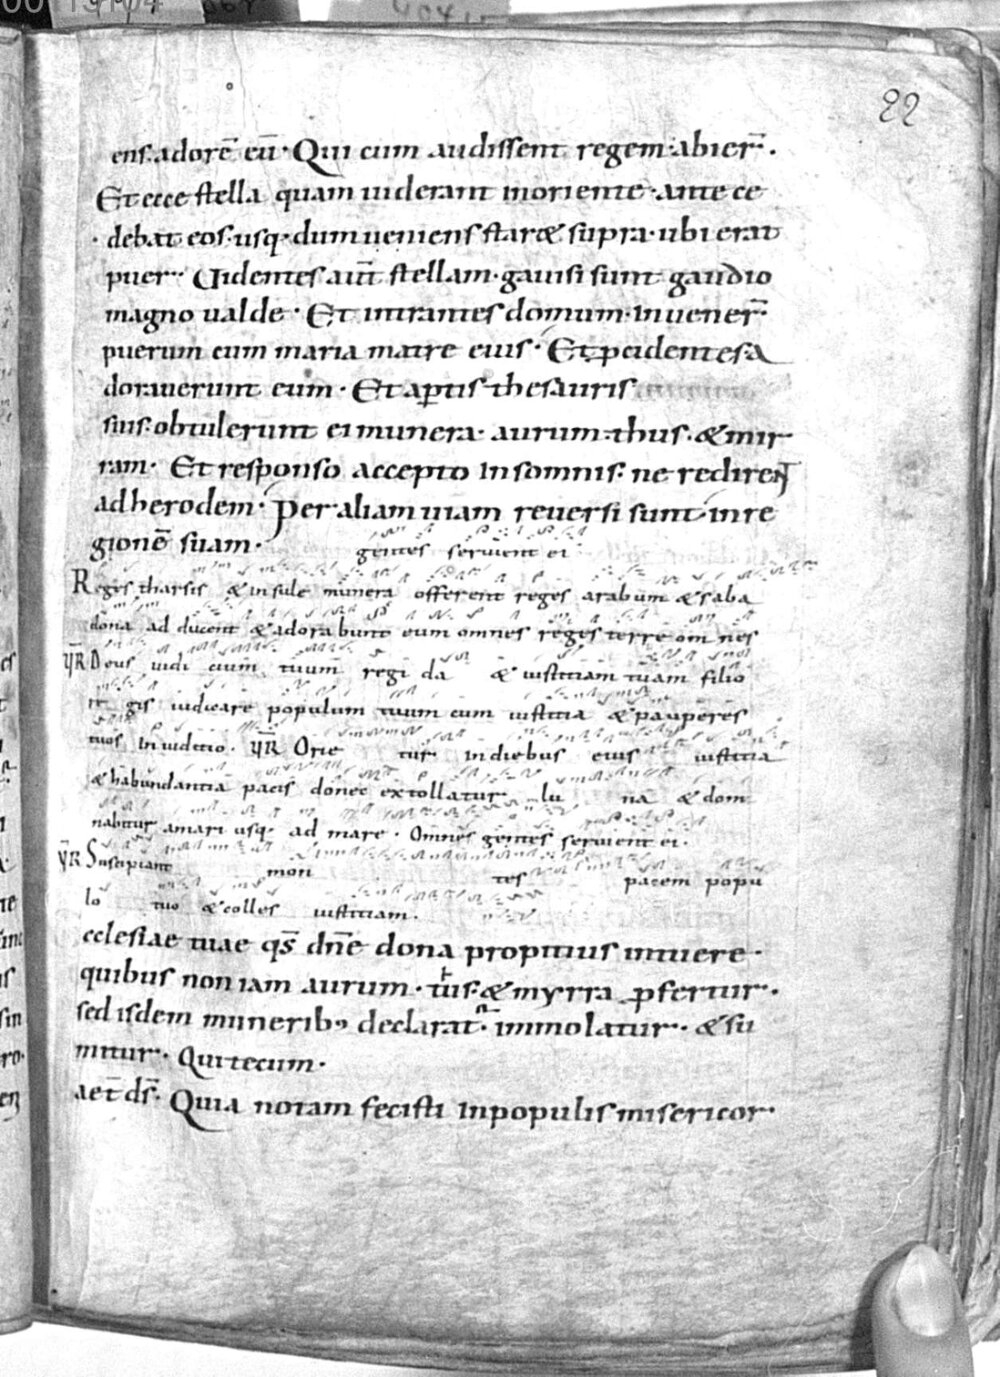 22
ens. adorē eū· Qui cum audissent regem· abier̄.
Et ecce stella quam uiderant inoriente· ante ce
debat eos· usq· dum ueniens staret supra· ubi erat
puer· Uidentes aut̄ stellam· gauisi sunt gaudio
magno ualde· Et intrantes domum· inuener̄·
puerum cum maria matre eius· Et pcidentes a
dorauerunt eum· Et aptis thesauris
suis· obtulerunt ei munera· aurum· thus· & mir
ram· Et responso accepto insomnis· ne redirent
adherodem· Per aliam uiam reuersi sunt inre
gionē suam·
gentes seruient ei
Reges tharsis & insule munera offerent reges arabum & saba
dona ad ducent & adorabunt eum omnes reges terre om nes
℣R Deus iudi cium tuum regi da & iustitiam tuam filio
re gis iudicare populum tuum cum iustitia & pauperes
tuos in iuditio. ℣R Orie tur indiebus eius iustitia
& habundantia pacis donec extollatur lu na & dom
nabitur amari usq· ad mare· Omnes gentes seruient ei·
℣R Suscipiant mon tes pacem popu
lo tuo & colles iustitiam.
ecclesiae tuae qs̄ dn̄e dona propitius intuere·
quibus non iam aurum· tus· & myrra pfertur·
sed isdem munerib; declarat· immolatur· & su
mitur· Qui tecum·
aet̄ ds̄· Quia notam fecisti inpopulis misericor